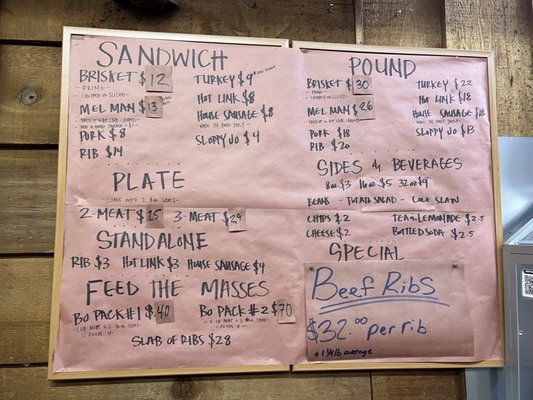 SANDWICH
BRISKET $12
- PRIME -
- CHOPPED OR SLICED -
MEL MAN $13
PORK $8
RIB $14
TURKEY $9
HOT LINK $8
HOUSE SAUSAGE $8
SLOPPY JO $4
PLATE
- COME WITH 2 8oz. SIDES -
2-MEAT $25 3-MEAT $29
STANDALONE
RIB $3 HOT LINK $3 HOUSE SAUSAGE $4
FEED THE MASSES
BO PACK #1 $40
FEEDS 4
BO PACK #2 $70
FEEDS
SLAB OF RIBS $28
POUND
BRISKET $30
MEL MAN $26
PORK $18
RIB $20
TURKEY $22
HOT LINK $18
HOUSE SAUSAGE $18
SLOPPY JO $13
SIDES & BEVERAGES
8oz $3 16oz $5 32oz $9
BEANS - POTATO SALAD - COLE SLAW
CHIPS $2
CHEESE $2
TEA/LEMONADE $2.5
BOTTLED SODA $2.5
SPECIAL
BEEF RIBS
$32.00 per rib
± 1 1/4 lb average